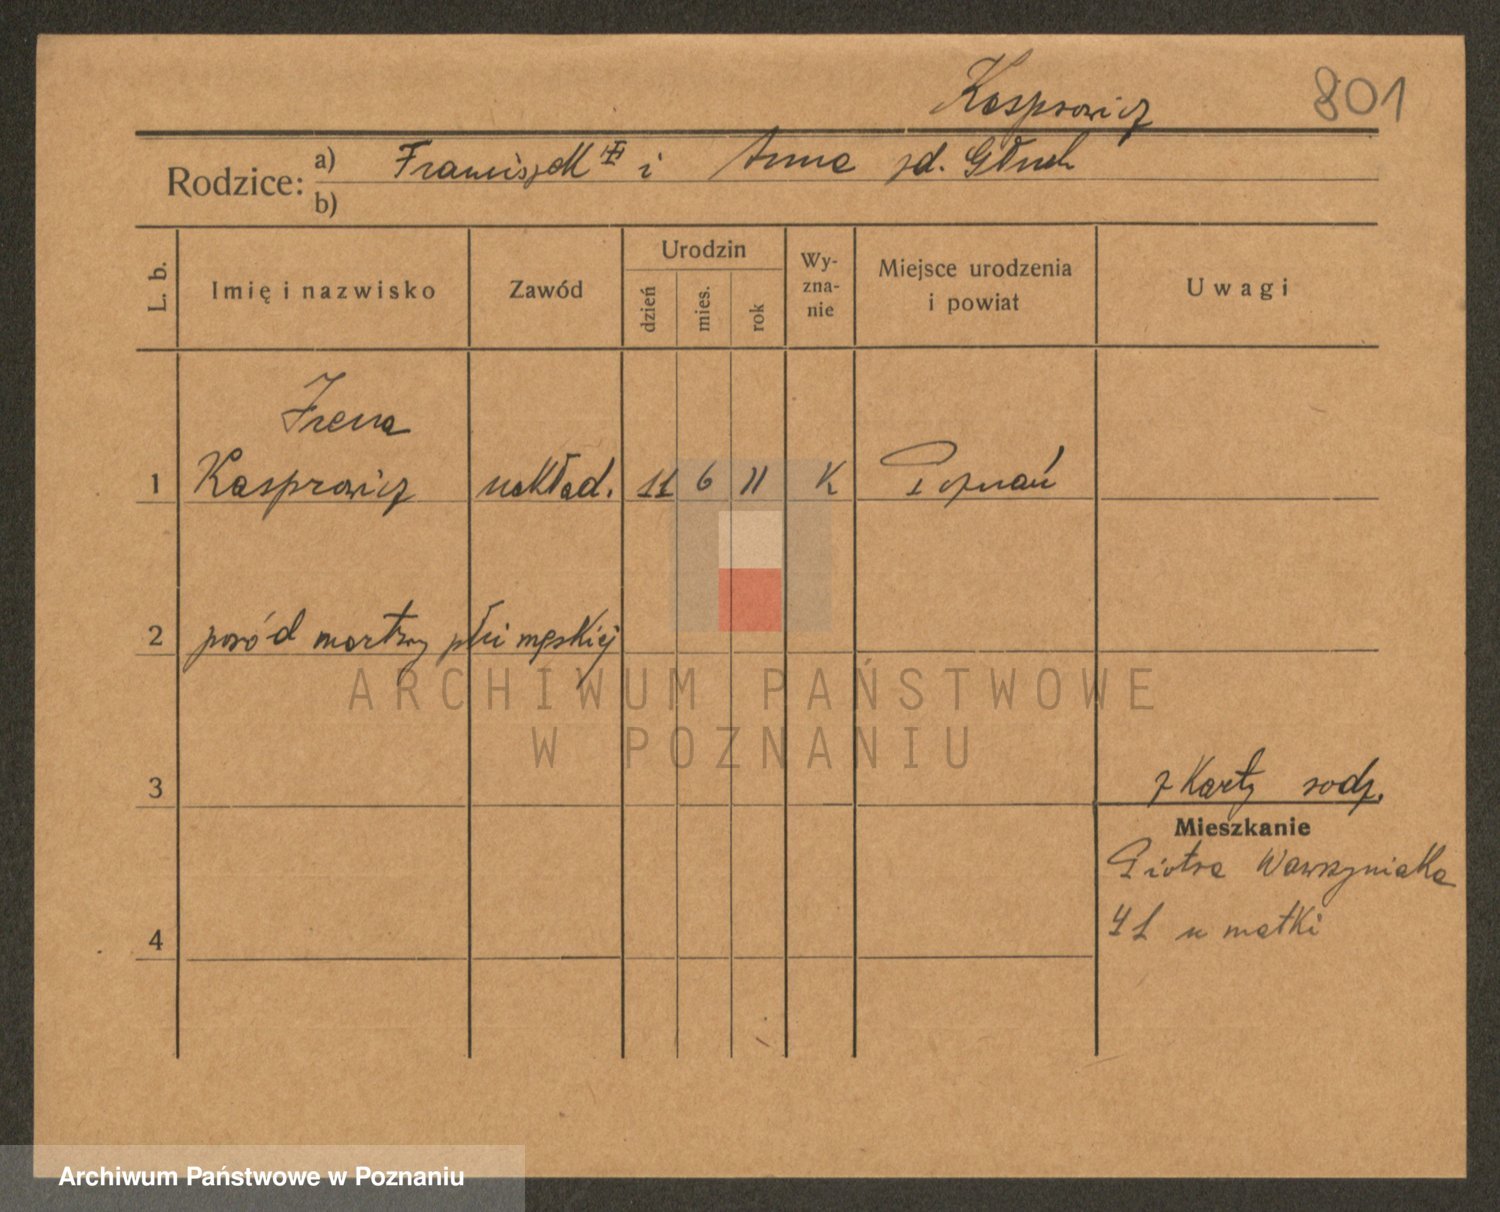 Kasprowicz
801
Rodzice: a) Franciszek i Anna zd. Głuch
b)
L. b. Imię i nazwisko Zawód Urodzin dzień mies. rok Wy-zna-nie Miejsce urodzenia i powiat Uwagi
Irena
1 Kasprowicz nakład. 11 6 11 K Poznań
2 poród martwy płci męskiej
ARCHIWUM PAŃSTWOWE
W POZNANIU
3 z Karty rodz.
Mieszkanie
Piotra Wawrzyniaka
41 u matki
4
Archiwum Państwowe w Poznaniu